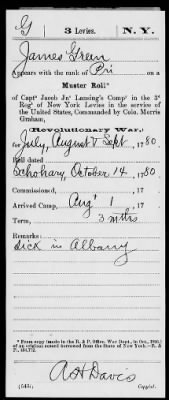 G 3 Levies. N.Y.
James Green
Appears with the rank of Pri on a
Muster Roll*
of Capt Jacob Jnr Lansing's Comp in the 3d
Reg of New York Levies in the service of
the United States, Commanded by Colo. Morris
Graham,
(Revolutionary War,)
for July, August & Sept, 1780.
Roll dated
Schohary, October 14, 1780.
Commissioned, , 17 .
Arrived Camp, Aug' 1 , 17 .
Term, 3 mths
Remarks:
Sick in Albany
* From copy (made in the R. & P. Office, War Dept., in Oct.,
of an original record borrowed from the State of New York.—R. &
P.,
A H Davis
Copyist.